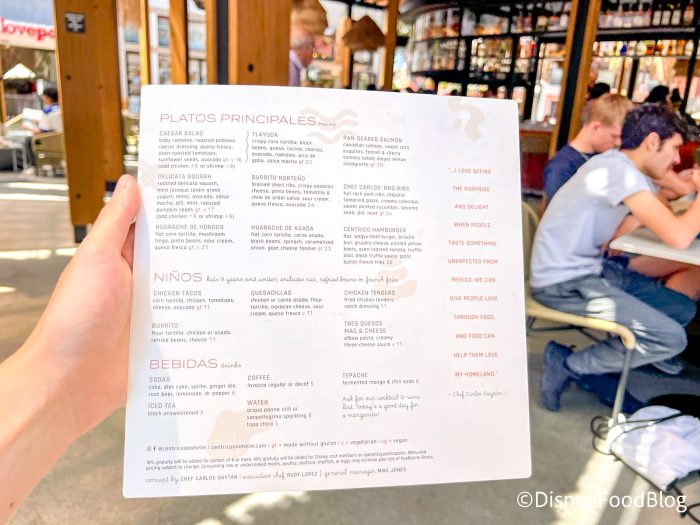 PLATOS PRINCIPALES mains
CAESAR SALAD
baby romaine, roasted poblano
caesar dressing, queso fresco,
oven-roasted tomatoes,
sunflower seeds, avocado gf, v 16
(add chicken +6 or shrimp +9)
DELICATA SQUASH
roasted delicata squash,
mint jocoque (plain greek
yogurt, mint), avocado, salsa
macha, dill, mint, roasted
pumpkin seeds gf, v 17
(add chicken +6 or shrimp +9)
HUARACHE DE HONGOS
flat corn tortilla, mushroom
tinga, pinto beans, sour cream,
queso fresco gf, v
TLAYUDA
crispy corn tortilla, black
beans, queso, cecina, chorizo,
avocado, radishes, pico de
gallo, salsa macha gf 23
BURRITO NORTEÑO
braised short ribs, crispy oaxacan
cheese, pinto beans, tomatillo &
chile de arbol salsa, sour cream,
queso fresco, avocado 24
HUARACHE DE ASADA
flat corn tortilla, carne asada,
black beans, spinach, caramelized
onion, goat cheese fondue gf 22
PAN-SEARED SALMON
canadian salmon, sweet corn
esquites, fennel & cherry
tomato salad, meyer lemon
vinaigrette gf 30
CHEF CARLOS' BBQ RIBS
fall rack pork ribs, chipotle
tamarind glaze, creamy coleslaw,
sweet pickled cucumber, sesame
seed, dill, mint gf 34
CENTRICO HAMBURGER
8oz. wagyu beef burger, brioche
bun, gruyère cheese, pickled yellow
beets, oven-roasted tomato, truffle
dill, black truffle sauce, garlic
butter french fries 26
NIÑOS kids 9 years and under; includes rice, refried beans or french fries
CHICKEN TACOS
corn tortilla, chicken, tomatoes,
cheese, avocado gf 11
BURRITO
flour tortilla, chicken or asada,
refried beans, cheese 11
QUESADILLAS
chicken or carne asada, flour
tortilla, oaxacan cheese, sour
cream, queso fresca v 11
CHICKEN TENDERS
fried chicken tenders,
ranch dressing 11
TRES QUESOS
MAC & CHEESE
elbow pasta, creamy
three-cheese sauce v 11
BEBIDAS drinks
SODAS
coke, diet coke, sprite, ginger ale,
root beer, lemonade, dr pepper 6
ICED TEA
black unsweetened 5
COFFEE
lavazza regular or decaf 5
WATER
acqua panna still or
sanpellegrino sparkling 8
topo chico 5
TEPACHE
fermented mango & chili soda 6
Ask for our cocktail & wine
list. Today's a good day for
a margarita!
"...I LOVE SEEING
THE SURPRISE
AND DELIGHT
WHEN PEOPLE
TASTE SOMETHING
UNEXPECTED FROM
MEXICO. WE CAN
GIVE PEOPLE LOVE
THROUGH FOOD,
AND FOOD CAN
HELP THEM LOVE
MY HOMELAND."
- Chef Carlos Gaytán
@centricoanaheim | centricoanaheim.com | gf = made without gluten | v = vegetarian | vg = vegan
18% gratuity will be added for parties of 8 or more. 18% gratuity will be added for Disney cast members or operating participants. Menu and
pricing subject to change. Consuming raw or undercooked meats, poultry, seafood, shellfish, or eggs may increase your risk of foodborne illness.
concept by CHEF CARLOS GAYTÁN | executive chef RUDY LOPEZ | general manager MIKE JONES
©DisneyFoodBlog